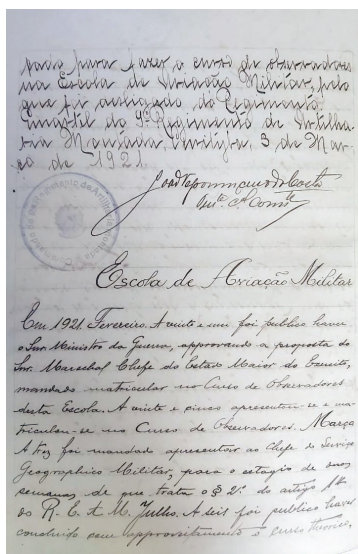 nado para fazer o curso de observadores
na Escola de Aviação Militar, pelo
que foi desligado do Regimento
do 9º Regimento de Artilha-
ria Montada. Curityba, 3 de Mar-
ço de 1921.
Escola de Aviação Militar
Em 1921. Fevereiro. A vinte e um foi publico haver
o Snr. Ministro da Guerra, approvando a proposta do
Snr. Marechal Chefe do Estado Maior do Exercito,
mandado matricular no Curso de Observadores
desta Escola. A vinte e cinco apresentou-se e ma-
triculou-se no Curso de Observadores. Março
A tres foi mandado apresentar ao Chefe do Serviço
Geographico Militar, para o estagio de duas
semanas de que trata o § 2º do artigo
do R. E. A. M. Julho. A seis foi publico haver
concluido com approveitamento o curso theorico,